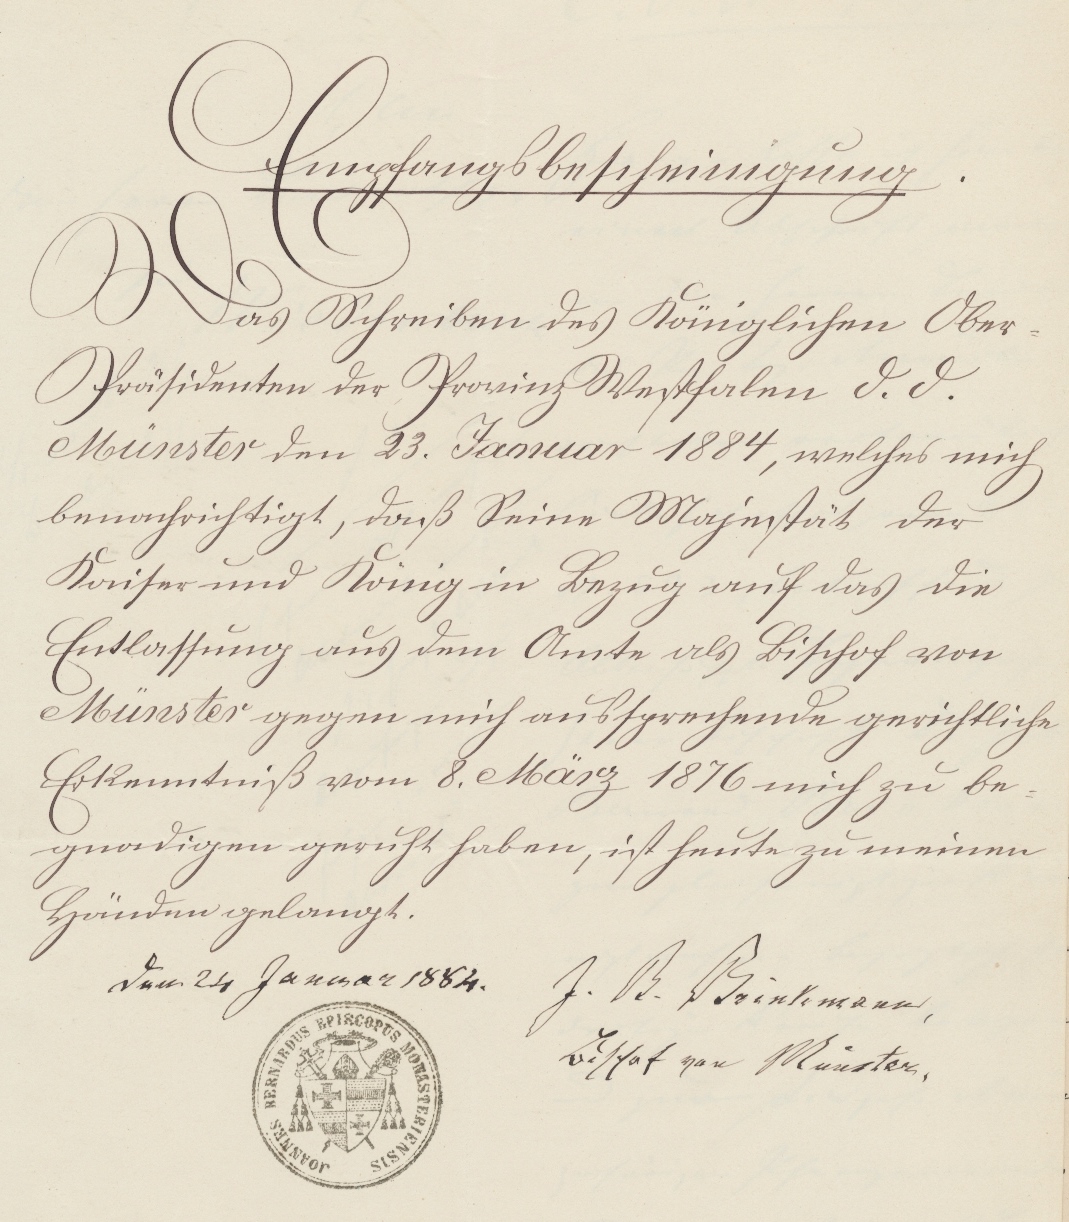 Empfangsbescheinigung.
Das Schreiben des Königlichen Ober-
Präsidenten der Provinz Westfalen d. d.
Münster den 23. Januar 1884, welches mich
benachrichtigt, daß Seine Majestät der
Kaiser und König in Bezug auf das die
Entlassung aus dem Amte als Bischof von
Münster gegen mich aussprechende gerichtliche
Erkenntniß vom 8. März 1876 mich zu be-
gnadigen geruht haben, ist heute zu meinen
Händen gelangt.
den 24 Januar 1884.
J. B. Brinkmann,
Bischof von Münster.
JOANNES BERNARDUS EPISCOPUS MONASTERIENSIS